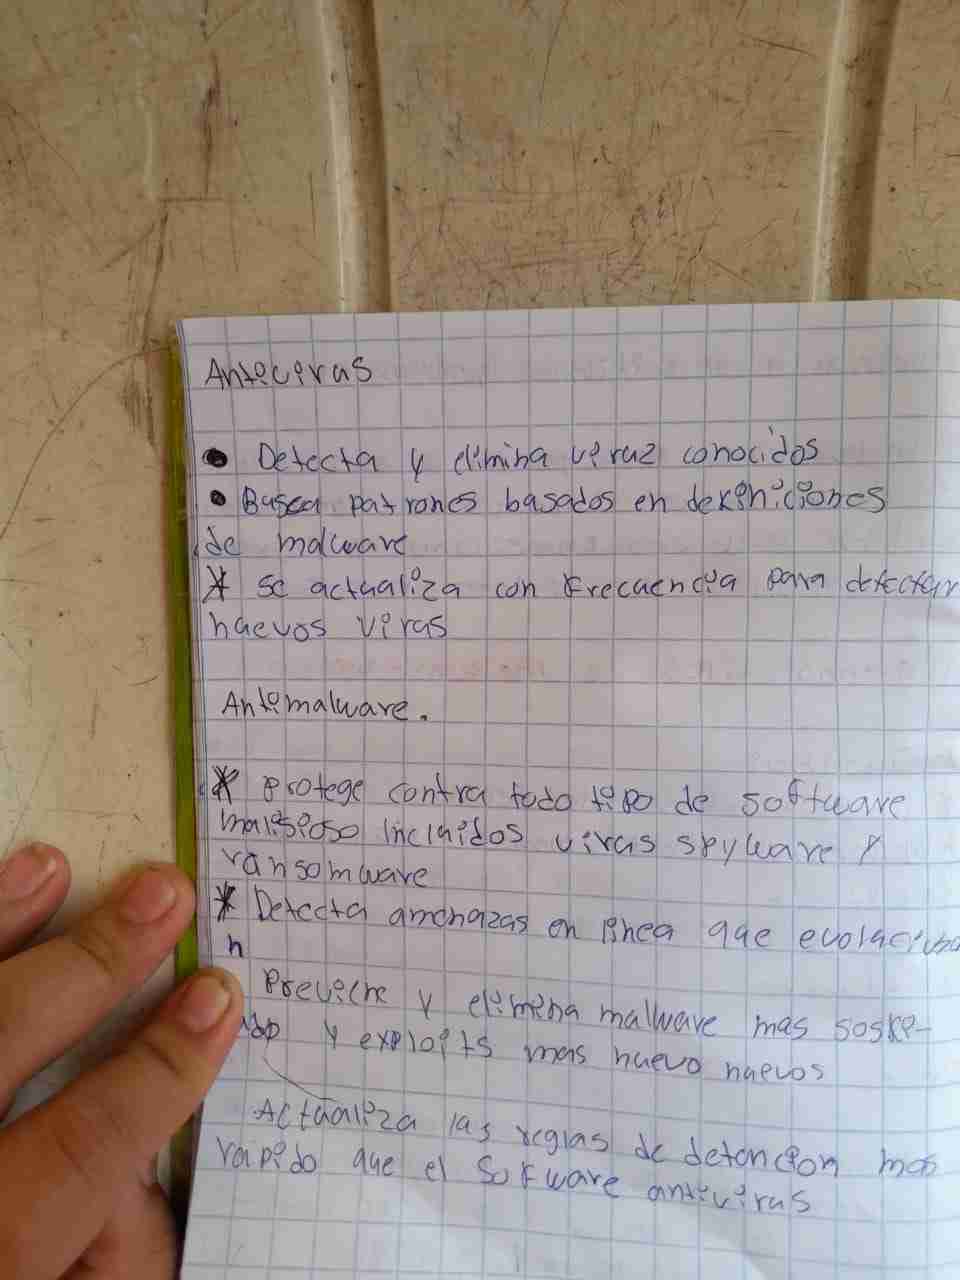 Anteviras
Detecta y elimina viruz conocidos
Busca patrones basados en definiciones
de malware
* Se actualiza con frecuencia para detectar
nuevos viras
Antemalware.
* Protege contra todo tipo de software
malisioso incluidos viras spyware y
ransomware
* Detecta amenazas en linea que evoluciona
n
Previene y elimena malware mas soske-
y exploits mas nuevo nuevos
Actualiza las reglas de detencion mas
rapido que el software antiviras